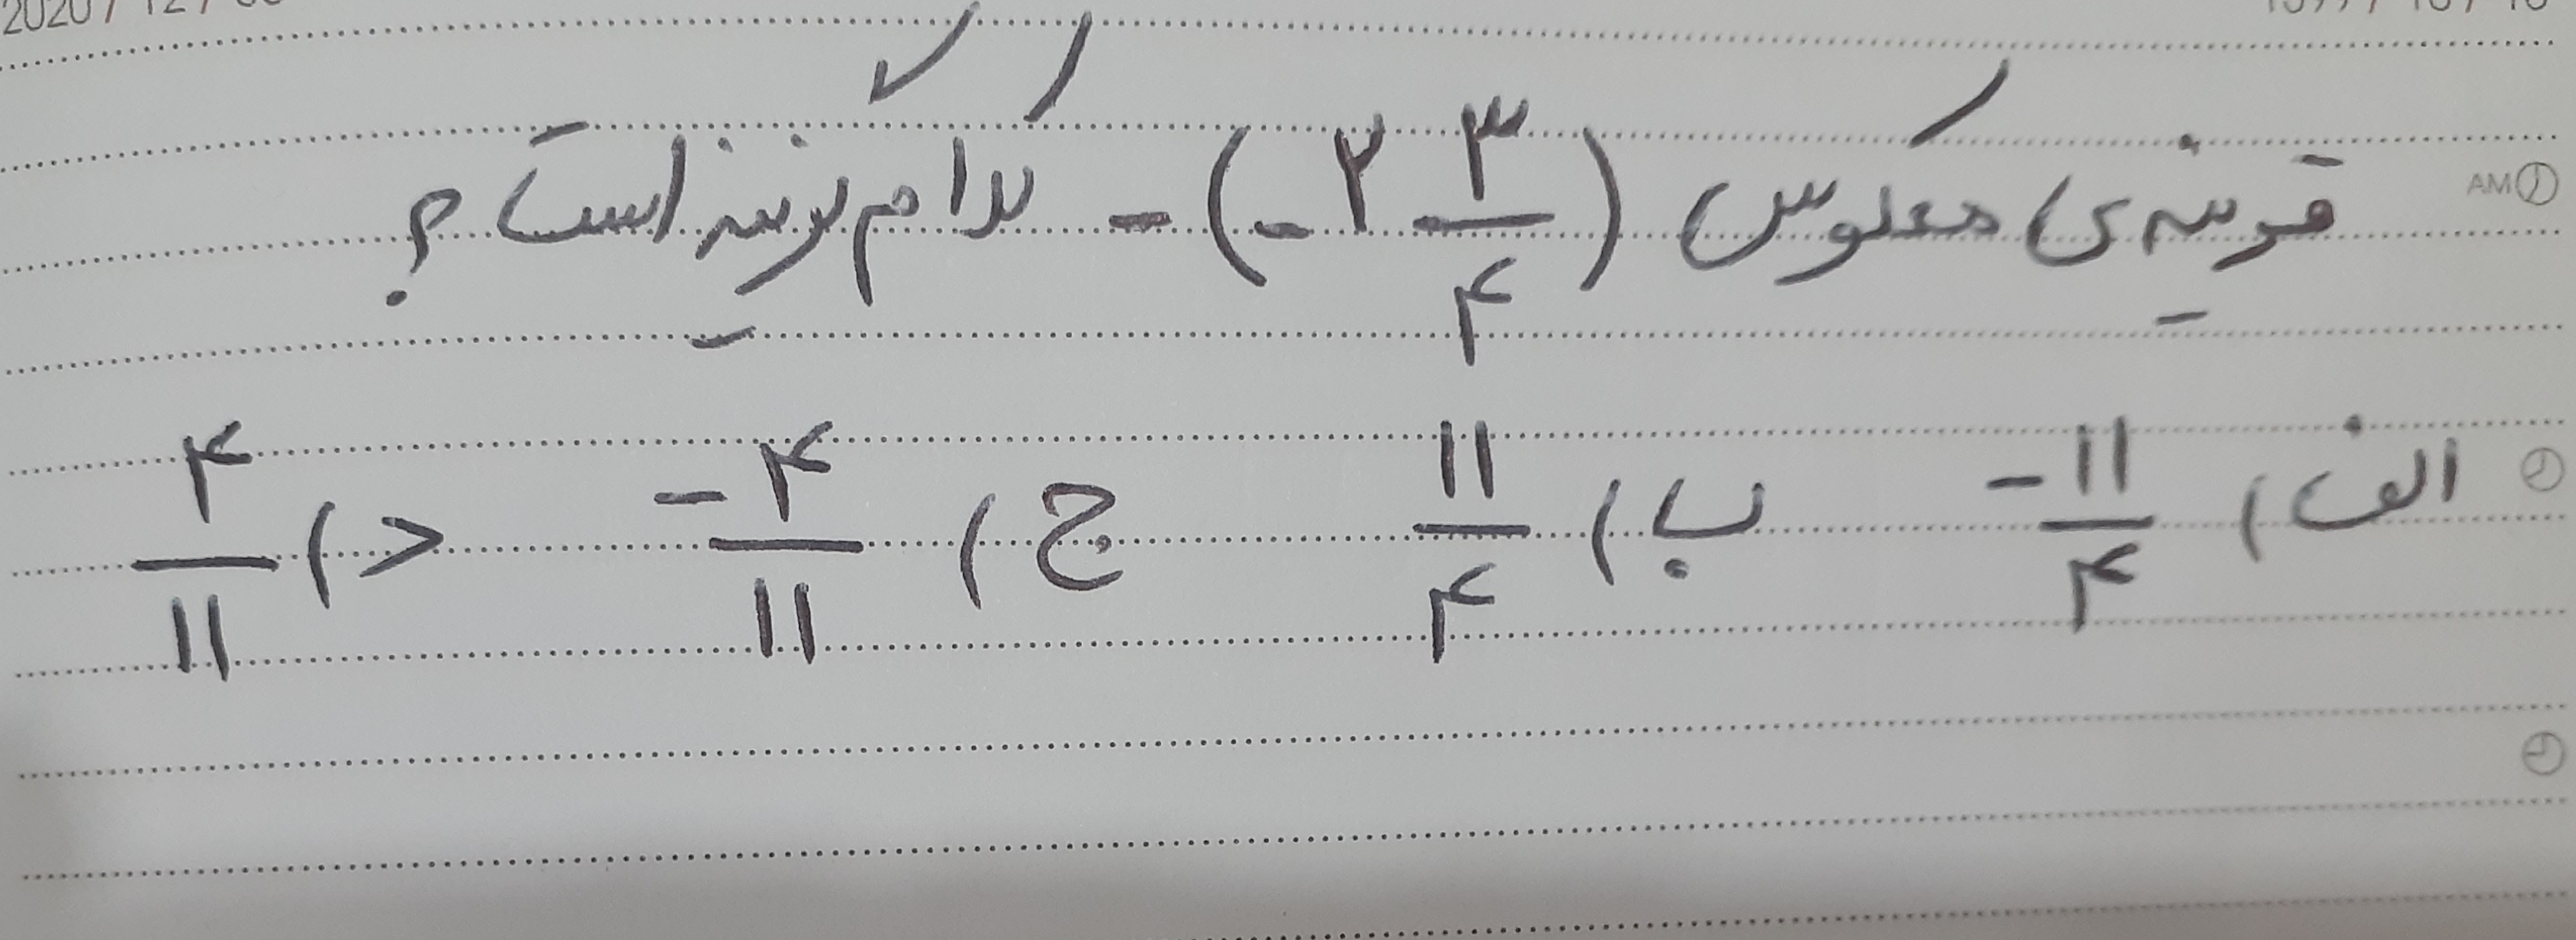 2020 / 12 /
قرینه‌ی معکوس (-۲ ۳/۴)- کدام گزینه است؟
AM
الف) -۱۱/۴ ب) ۱۱/۴ ج) -۴/۱۱ د) ۴/۱۱